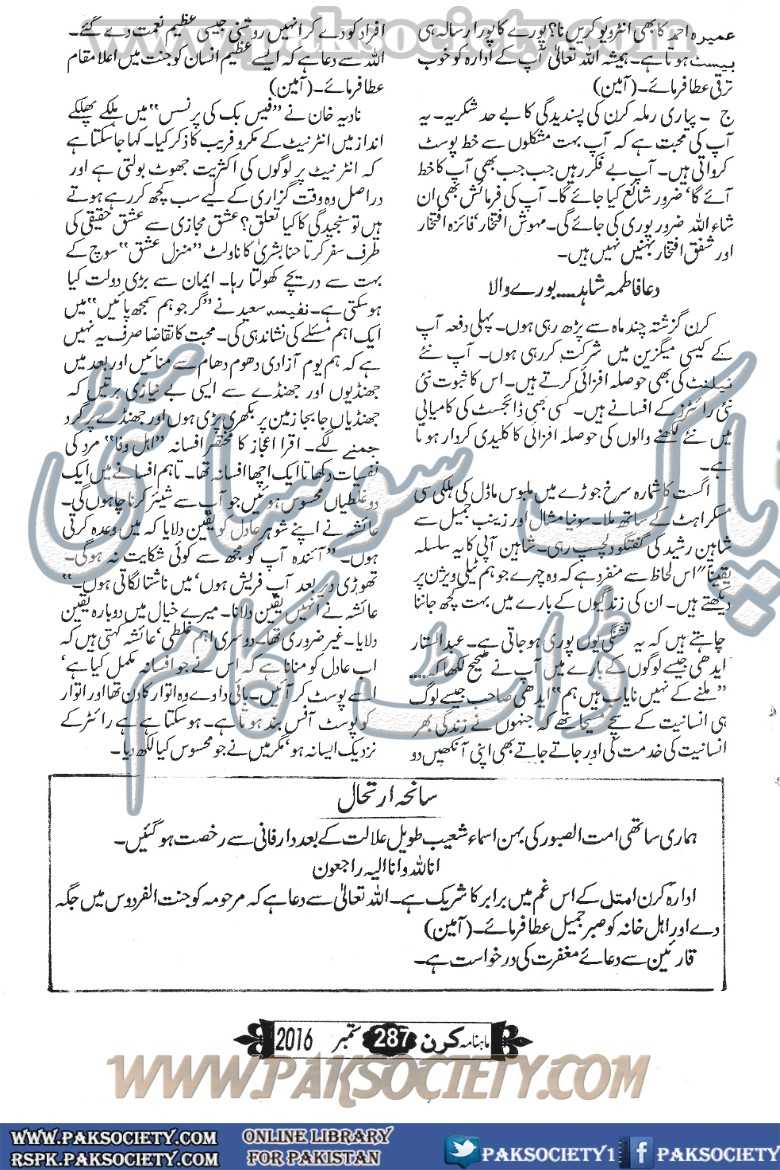 www.paksociety.com
عمیرہ احمد کا بھی انٹرویو کریں نا؟ پورے کا پورا رسالہ ہی
بیسٹ ہوتا ہے۔ ہمیشہ اللہ تعالیٰ آپ کے ادارہ کو خوب
ترقی عطا فرمائے۔ (آمین)
ج ۔ پیاری رملہ کرن کی پسندیدگی کا بے حد شکریہ۔ یہ
آپ کی محبت ہے کہ آپ بہت مشکلوں سے خط پوسٹ
کرواتی ہیں۔ آپ بے فکر رہیں جب جب بھی آپ کا خط
آئے گا‘ ضرور شائع کیا جائے گا۔ آپ کی فرمائش بھی ان
شاء اللہ ضرور پوری کی جائے گی۔ مہوش افتخار‘ فائزہ افتخار
اور شفق افتخار بہنیں نہیں ہیں۔
دعا فاطمہ شاہد.... بورے والا
کرن گزشتہ چند ماہ سے پڑھ رہی ہوں۔ پہلی دفعہ آپ
کے کیسی میگزین میں شرکت کر رہی ہوں۔ آپ نئے
ٹیلنٹ کی بھی حوصلہ افزائی کرتے ہیں۔ اس کا ثبوت نئی
نئی رائٹرز کے افسانے ہیں۔ کسی بھی ڈائجسٹ کی کامیابی
میں نئے لکھنے والوں کی حوصلہ افزائی کا کلیدی کردار ہوتا
ہے۔
اگست کا شمارہ سرخ جوڑے میں ملبوس ماڈل کی ہلکی سی
مسکراہٹ کے ساتھ ملا۔ سونیا مشال اور زینب جمیل سے
شاہین رشید کی گفتگو دلچسپ رہی۔ شاہین آپی کا یہ سلسلہ
یقیناً اس لحاظ سے منفرد ہے کہ وہ چہرے جو ہم ٹیلی ویژن پر
دیکھتے ہیں۔ ان کی زندگیوں کے بارے میں بہت کچھ جاننا
چاہتے ہیں کہ یہ تشنگی یوں پوری ہو جاتی ہے۔ عبدالستار
ایدھی جیسے لوگوں کے بارے میں آپ نے صحیح لکھا کہ....
”ملنے کے نہیں نایاب ہیں ہم“ ایدھی صاحب جیسے لوگ
ہی انسانیت کے سچے مسیحا تھے کہ جنہوں نے زندگی بھر
انسانیت کی خدمت کی اور جاتے جاتے بھی اپنی آنکھیں دو
افراد کو دے کر انہیں روشنی جیسی عظیم نعمت دے گئے۔
اللہ سے دعا ہے کہ ایسے عظیم انسان کو جنت میں اعلا مقام
عطا فرمائے۔ (آمین)
نادیہ خان نے ”فیس بک کی پرنسس“ میں ہلکے پھلکے
انداز میں انٹرنیٹ کے مکر و فریب کا ذکر کیا۔ کہا جا سکتا ہے
کہ انٹرنیٹ پر لوگوں کی اکثریت جھوٹ بولتی ہے اور
دراصل وہ وقت گزاری کے لیے سب کچھ کر رہے ہوتے
ہیں تو سنجیدگی کا کیا تعلق؟ عشق مجازی سے عشق حقیقی کی
طرف سفر کرتا حنا بشریٰ کا ناولٹ ”منزل عشق“ سوچ کے
بہت سے دریچے کھولتا رہا۔ ایمان سے بڑی دولت کیا
ہو سکتی ہے۔ نفیسہ سعید نے ”گر جو ہم سمجھ پائیں“ میں
ایک اہم مسئلے کی نشاندہی کی۔ محبت کا تقاضا صرف یہ نہیں
ہے کہ ہم یوم آزادی دھوم دھام سے منائیں اور بعد میں
جھنڈیوں اور جھنڈے سے ایسی بے نیازی برتیں کہ
جھنڈیاں جا بجا زمین پر بکھری پڑی ہوں اور جھنڈے پر گرد
جمنے لگے۔ اقرا اعجاز کا مختصر افسانہ ”اہل وفا“ مرد کی
نفسیات دکھاتا ایک اچھا افسانہ تھا۔ تاہم افسانے میں ایک
دو غلطیاں محسوس ہوئیں جو آپ سے شیئر کرنا چاہوں گی۔
عائشہ نے اپنے شوہر عادل کو یقین دلایا کہ میں وعدہ کرتی
ہوں۔ ”آئندہ آپ کو مجھ سے کوئی شکایت نہ ہوگی۔
تھوڑی دیر بعد آپ فریش ہوں‘ میں ناشتا لگاتی ہوں۔“
عائشہ نے انہیں یقین دلانا۔ میرے خیال میں دوبارہ یقین
دلایا۔ غیر ضروری تھا۔ دوسری اہم غلطی‘ عائشہ کہتی ہیں کہ
اب عادل کو منانا ہے کہ اس نے جو افسانہ مکمل کیا ہے‘
اسے پوسٹ کر آئیں۔ بائی دا وے وہ اتوار کا دن تھا اور اتوار
کو پوسٹ آفس بند ہوتا ہے۔ ہو سکتا ہے رائٹر کے
نزدیک ایسا نہ ہو‘ مگر میں نے جو محسوس کیا لکھ دیا۔
پاک سوسائٹی
ڈاٹ کام
سانحہ ارتحال
ہماری ساتھی امت الصبور کی بہن اسماء شعیب طویل علالت کے بعد دار فانی سے رخصت ہو گئیں۔
انا للہ وانا الیہ راجعون
ادارہ کرن امتل کے اس غم میں برابر کا شریک ہے۔ اللہ تعالیٰ سے دعا ہے کہ مرحومہ کو جنت الفردوس میں جگہ
دے اور اہل خانہ کو صبر جمیل عطا فرمائے۔ (آمین)
قارئین سے دعائے مغفرت کی درخواست ہے۔
ماہنامہ کرن 287 ستمبر 2016
WWW.PAKSOCIETY.COM
WWW.PAKSOCIETY.COM ONLINE LIBRARY PAKSOCIETY1 PAKSOCIETY
RSPK.PAKSOCIETY.COM FOR PAKISTAN